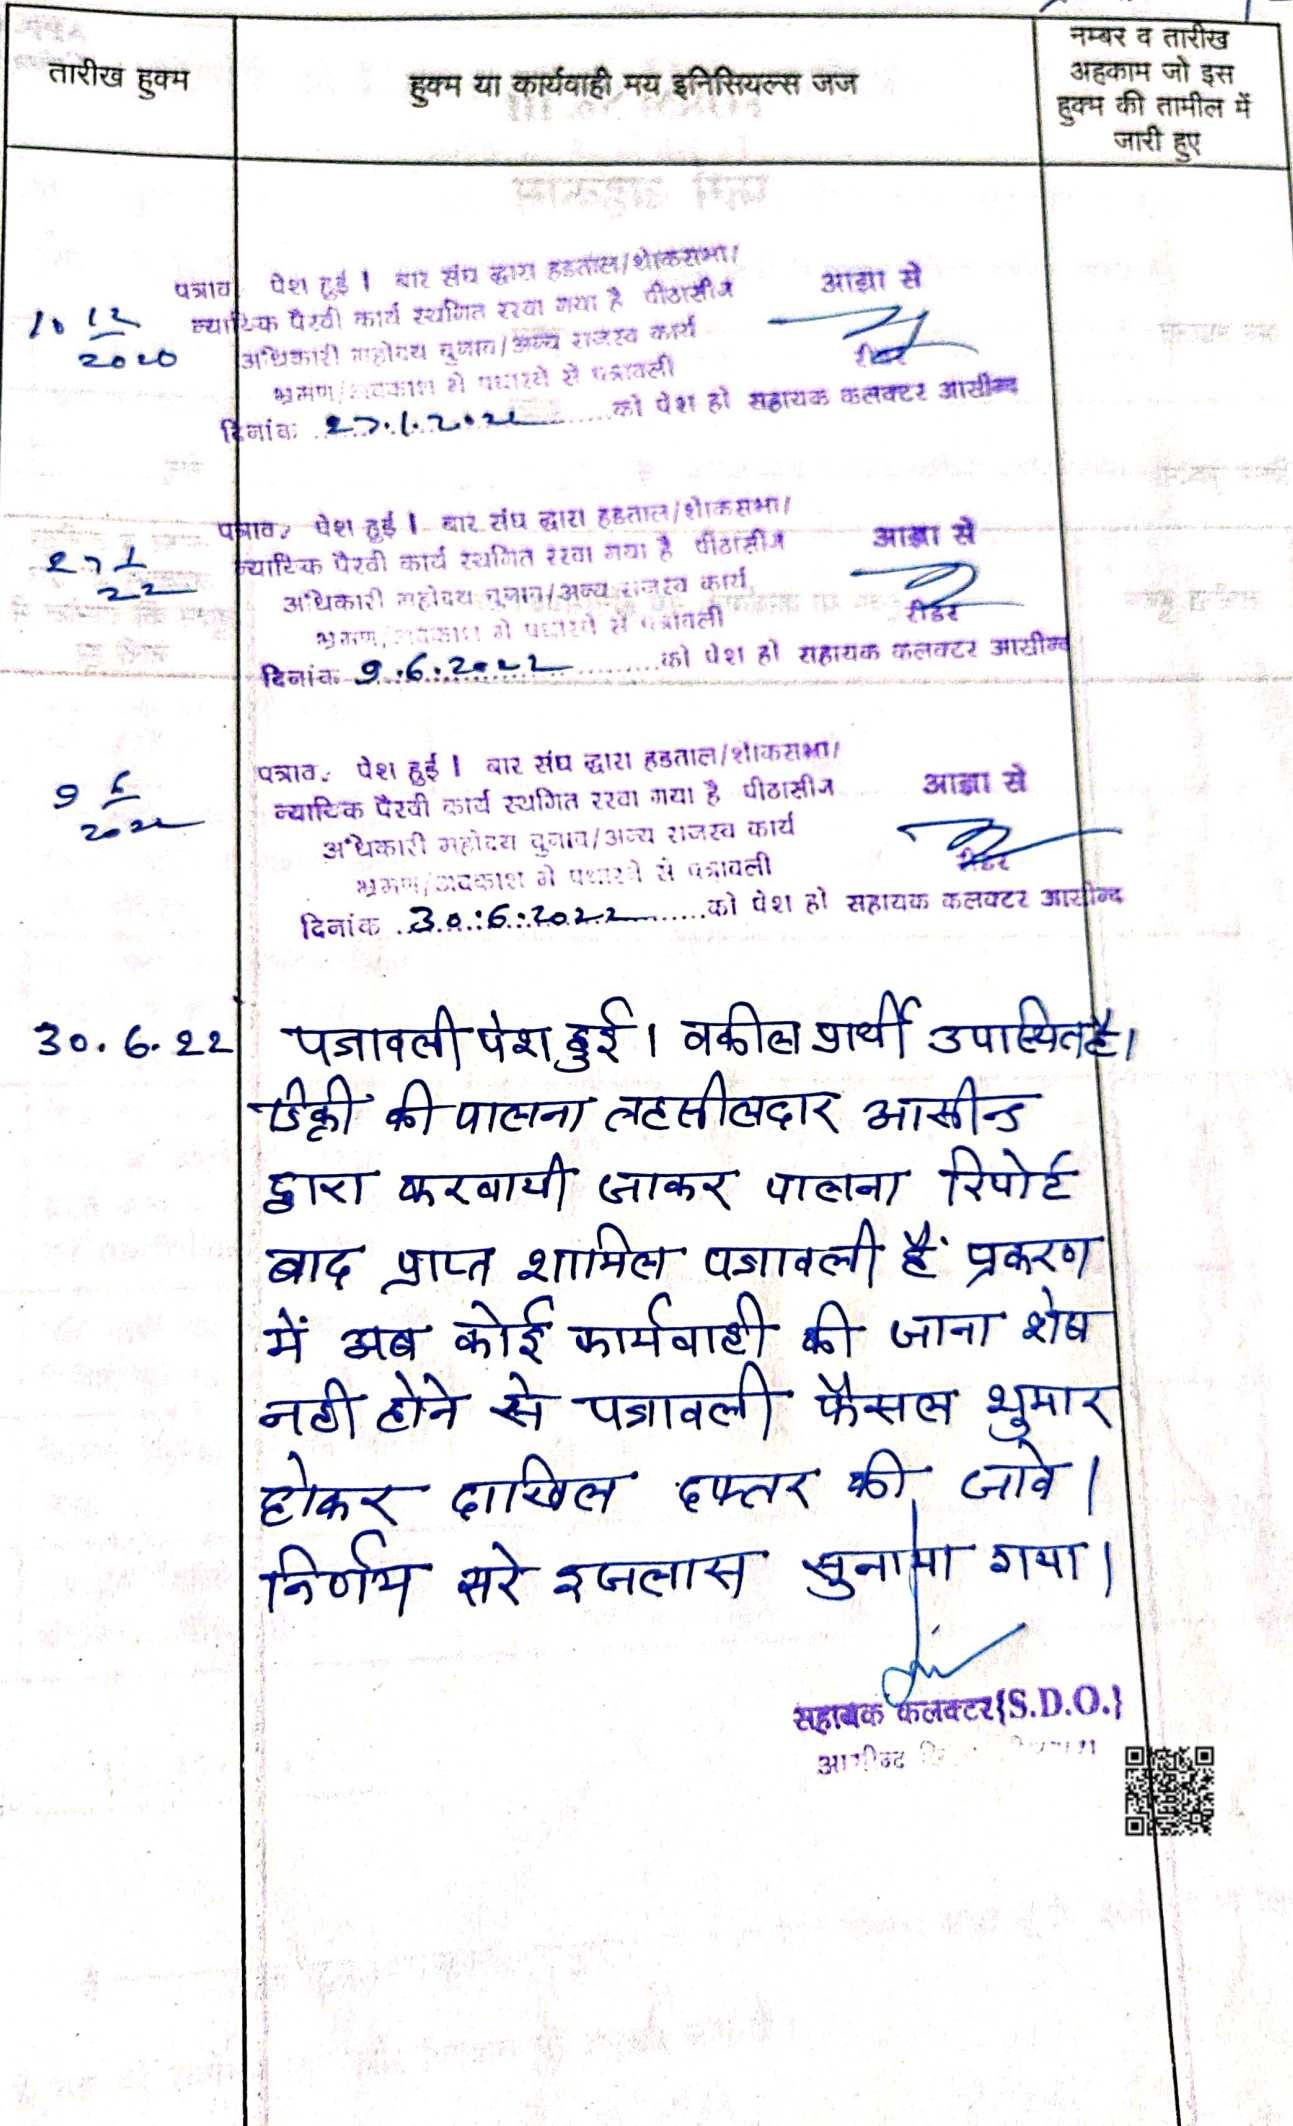 तारीख हुक्म
हुक्म या कार्यवाही मय इनिसियल्स जज
नम्बर व तारीख
अहकाम जो इस
हुक्म की तामील में
जारी हुए
10 12
2020
पत्राव पेश हुई । बार संघ द्वारा हडताल/शोकसभा/
न्यायिक पैरवी कार्य स्थगित रखा गया है पीठासीन
अधिकारी महोदय चुनाव/अन्य राजस्व कार्य
भ्रमण/अवकाश मे पधारने से पत्रावली
दिनांक 27.1.2022 को पेश हो सहायक कलक्टर आसीन्द
आज्ञा से
रीडर
27 1
22
पत्राव. पेश हुई । बार संघ द्वारा हडताल/शोकसभा/
न्यायिक पैरवी कार्य स्थगित रखा गया है पीठासीन
अधिकारी महोदय चुनाव/अन्य राजस्व कार्य
भ्रमण/अवकाश मे पधारने से पत्रावली
दिनांक 9.6.2022 को पेश हो सहायक कलक्टर आसीन्द
आज्ञा से
रीडर
9 6
2022
पत्राव. पेश हुई । बार संघ द्वारा हडताल/शोकसभा/
न्यायिक पैरवी कार्य स्थगित रखा गया है पीठासीन
अधिकारी महोदय चुनाव/अन्य राजस्व कार्य
भ्रमण/अवकाश मे पधारने से पत्रावली
दिनांक 30.6.2022 को पेश हो सहायक कलक्टर आसीन्द
आज्ञा से
रीडर
30.6.22 पत्रावली पेश हुई । वकील प्रार्थी उपस्थित है ।
डिक्री की पालना तहसीलदार आसीन्द
द्वारा करवायी जाकर पालना रिपोर्ट
बाद प्राप्त शामिल पत्रावली हैं प्रकरण
में अब कोई कार्यवाही की जाना शेष
नही होने से पत्रावली फैसल शुमार
होकर दाखिल दफ्तर की जावे ।
निर्णय सरे इजलास सुनाया गया ।
सहायक कलक्टर{S.D.O.}
आसीन्द